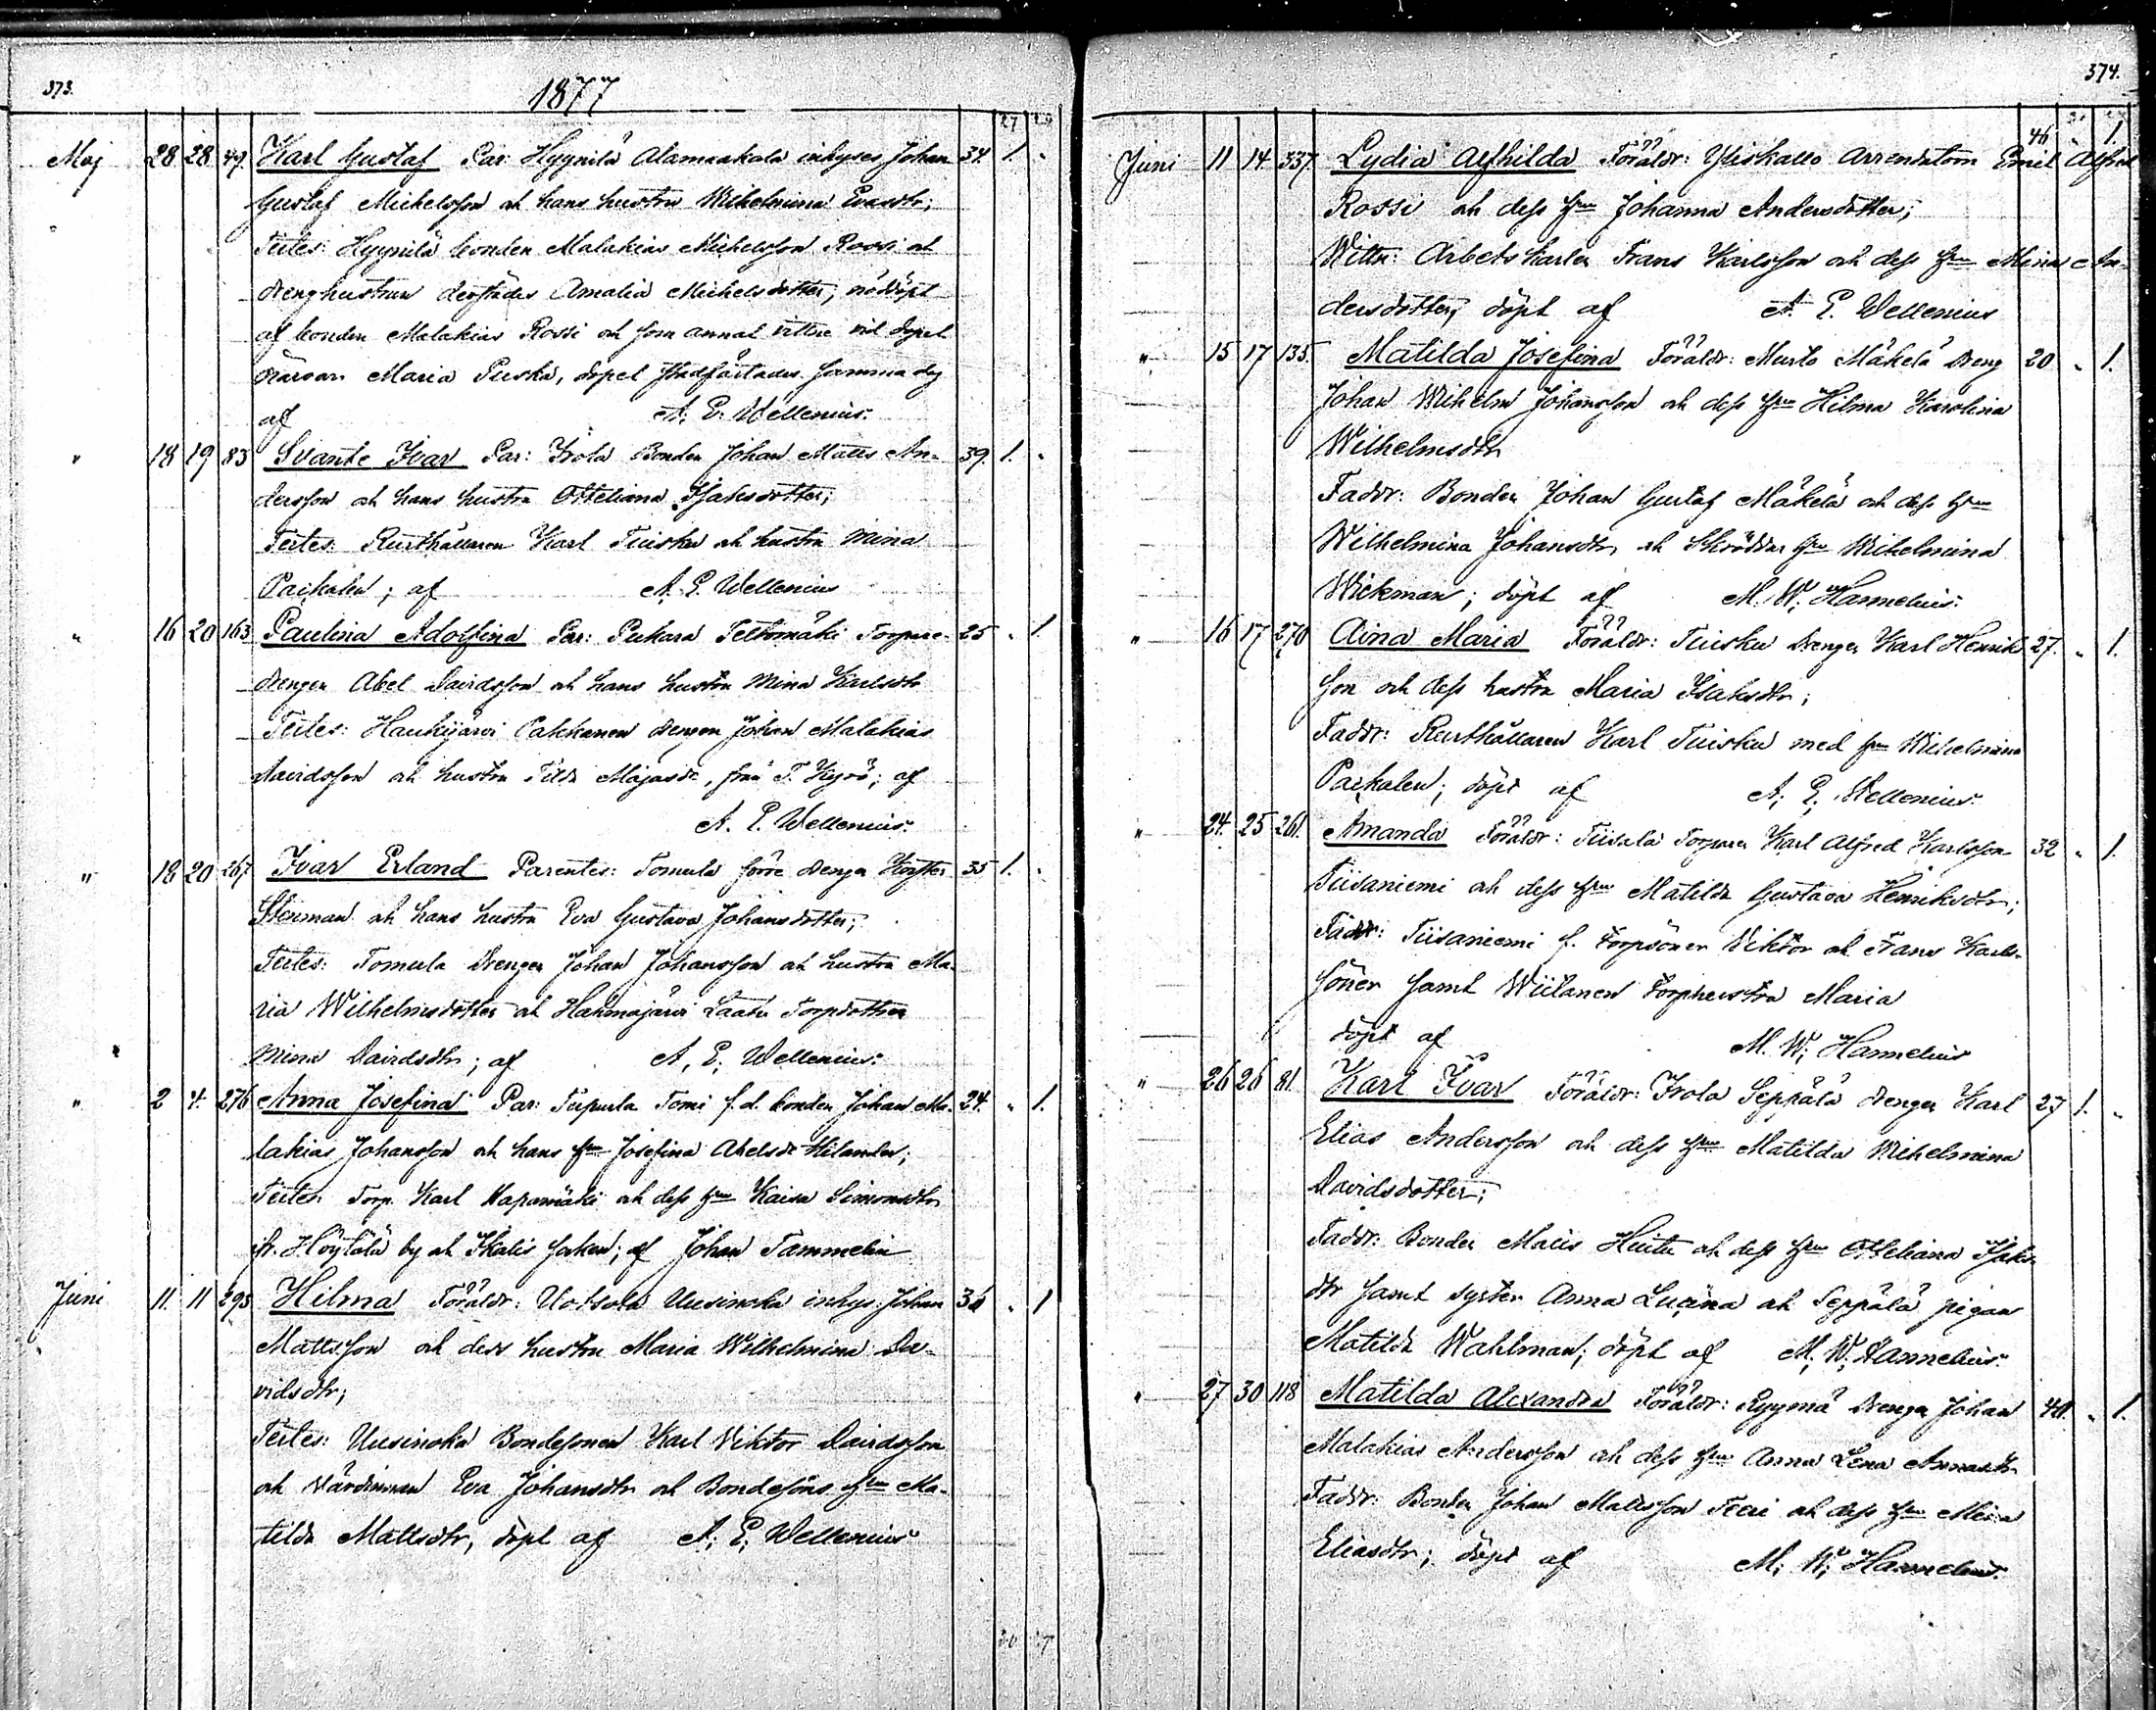 373.
1877
Maj 28 28 49. Karl Gustaf Par: Hyynilä Alamaakala inhyses Johan 34. 1. "
Gustaf Michelsson och hans hustru Wilhelmina Evasdtr;
Testes: Hyynilä bonden Malakias Michelsson Rossi och
drenghustrun derstädes Amalia Michelsdotter; nöddöpt
af bonden Malakias Rossi och som annat vittne vid dopet
närvar Maria Puska, dopet stadfästades samma dag
af A. E. Wellenius.
" 18 19 83 Svante Ivar Par: Irola Bonden Johan Matts An- 39. 1. "
dersson och hans hustru Otteliana Isaksdotter;
Testes: Rusthållaren Karl Tuisku och hustru Mina
Paikalen; af A. E. Wellenius
" 16 20 163 Paulina Adolfina Par: Pukara Teltomäki Torpare- 25 " 1.
drengen Abel Davidsson och hans hustru Mina Karlsdtr
Testes: Haukijärvi Pakkanen drengen Johan Malakias
Davidsson och hustru Tilda Majasdr, från T. Kyrö; af
A. E. Wellenius.
" 18 20 267 Ivar Erland Parentes: Tomula förre drengen 35 1. "
Stenman och hans hustru Eva Gustava Johansdotter;
Testes: Tomula Drengen Johan Johansson och hustru Ma-
ria Wilhelmsdotter och Hahmajärvi Laatu Torpdottren
Mina Davidsdtr; af A. E. Wellenius.
" 2 4. 276 Anna Josefina Par: Tupurla Tomi f.d. bonden Johan Ma- 24. " 1.
lakias Johansson och hans hru Josefina Abelsdr Hilander;
Testes: Torp. Karl Hapamäki och dess hru Kaisa Simonsdtr
fr. Höytölä by och Ikalis socken; af Johan Tammelin
Juni 11. 11 293 Hilma Föräldr: Uotsola Uusinoka inhys. Johan 36 " 1
Mattsson och dess hustru Maria Wilhelmina Da-
vidsdtr;
Testes: Uusinoka Bondesonen Karl Viktor Davidsson
och värdinnan Eva Johansdtr och Bondesöns hru Ma-
tilda Mattsdtr, döpt af A. E. Wellenius
374.
Juni 11 14. 337. Lydia Alfhilda Föräldr: Yliskallo Arrendatorn Emil Alfred 46 " 1.
Rossi och dess hru Johanna Andersdotter;
Wittn: Arbetskarlen Frans Karlsson och dess hru Mina An-
dersdotter, döpt af A. E. Wellenius
" 15 17 135. Matilda Josefina Föräldr: Murto Mäkelä Dreng 20 " 1.
Johan Wilhelm Johansson och dess hru Hilma Karolina
Wilhelmsdtr
Faddr: Bonden Johan Gustaf Mäkelä och dess hru
Wilhelmina Johansdtr, och Skräddar hru Wilhelmina
Wickman; döpt af M. W. Hannelius.
" 16 17 270 Aina Maria Föräldr: Tuisku Drengen Karl Henrik- 27. " 1.
son och dess hustru Maria Isaksdtr;
Faddr: Rusthållaren Karl Tuisku med hru Wilhelmina
Paikalen; döpt af A. E. Wellenius.
" 24. 25 261. Amanda Föräldr: Tiisala Torparen Karl Alfred Karlsson 32 " 1.
Tiisaniemi och dess hru Matilda Gustava Henriksdtr;
Faddr: Tiisaniemi f. Torpsöner Viktor och Frans Karls-
söner samt Wiitanen Torphustru Maria
döpt af M. W. Hannelius
" 26 26 81 Karl Ivar Föräldr: Irola Seppälä drengen Karl 27 1. "
Elias Andersson och dess hru Matilda Wilhelmina
Davidsdotter;
Faddr: Bonden Matts Hiitu och dess hru Otteliana Isaks-
dtr samt syster Anna Lucina och Seppälä pigan
Matilda Wahlman; döpt af M. W. Hannelius.
" 27 30 118 Matilda Alexandra Föräldr: Ryymä Drengen Johan 40. " 1.
Malakias Andersson och dess hru Anna Lena Annasdtr
Faddr: Bonden Johan Mattsson och dess hru Mina
Eliasdtr; döpt af M. W. Hannelius.